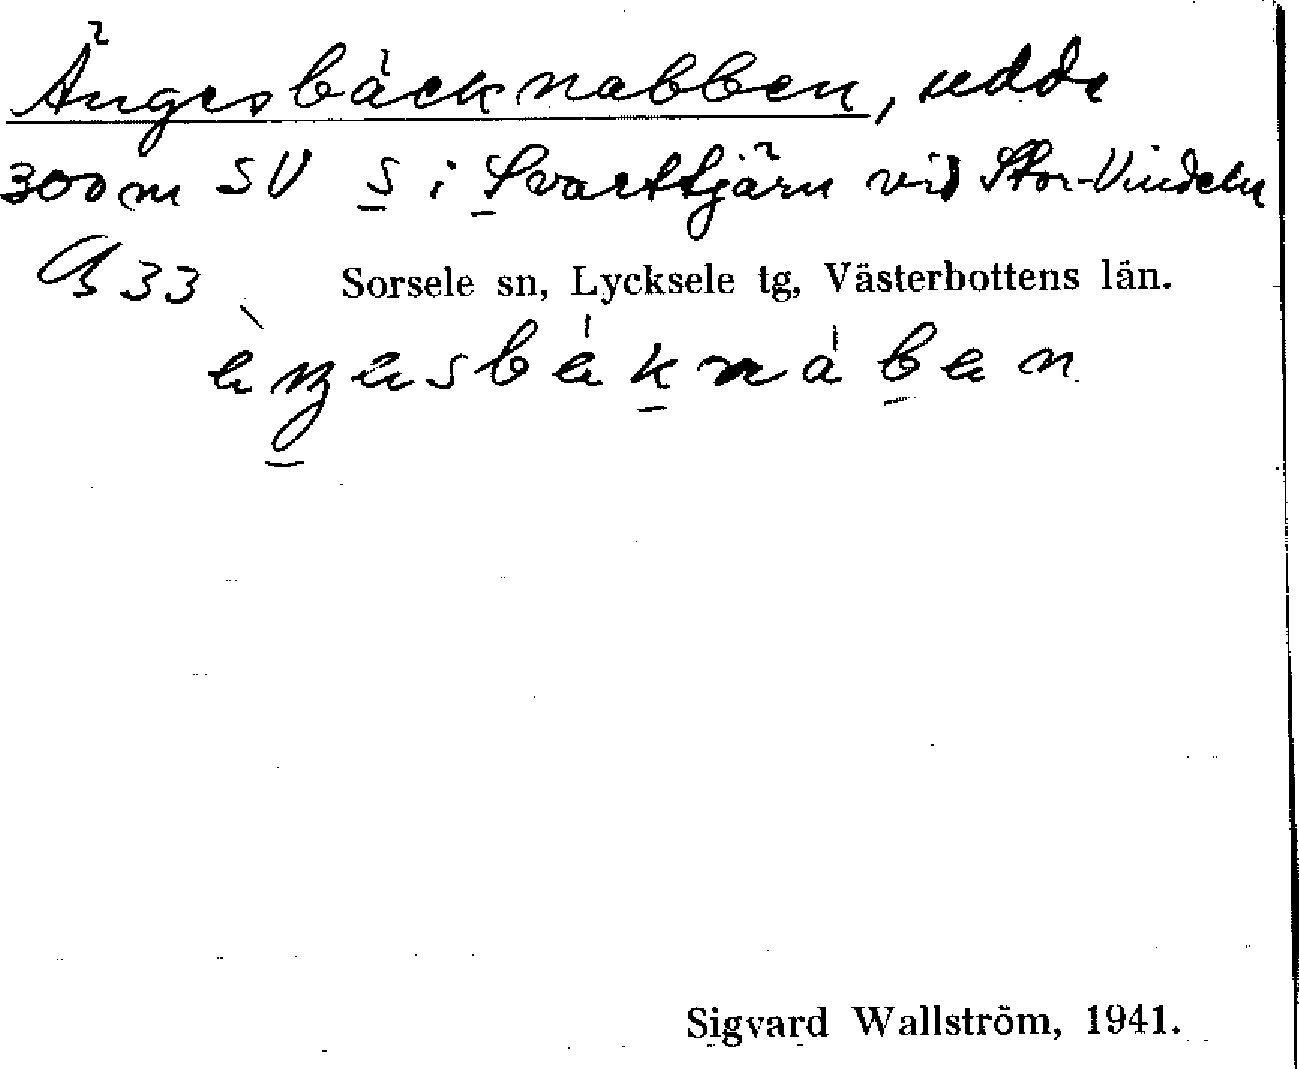 Ängesbäcknabben, udde
300 m SV S i Svarttjärn vid Stor-Vindeln
33 Sorsele sn, Lycksele tg, Västerbottens län.
Sigvard Wallström, 1941.